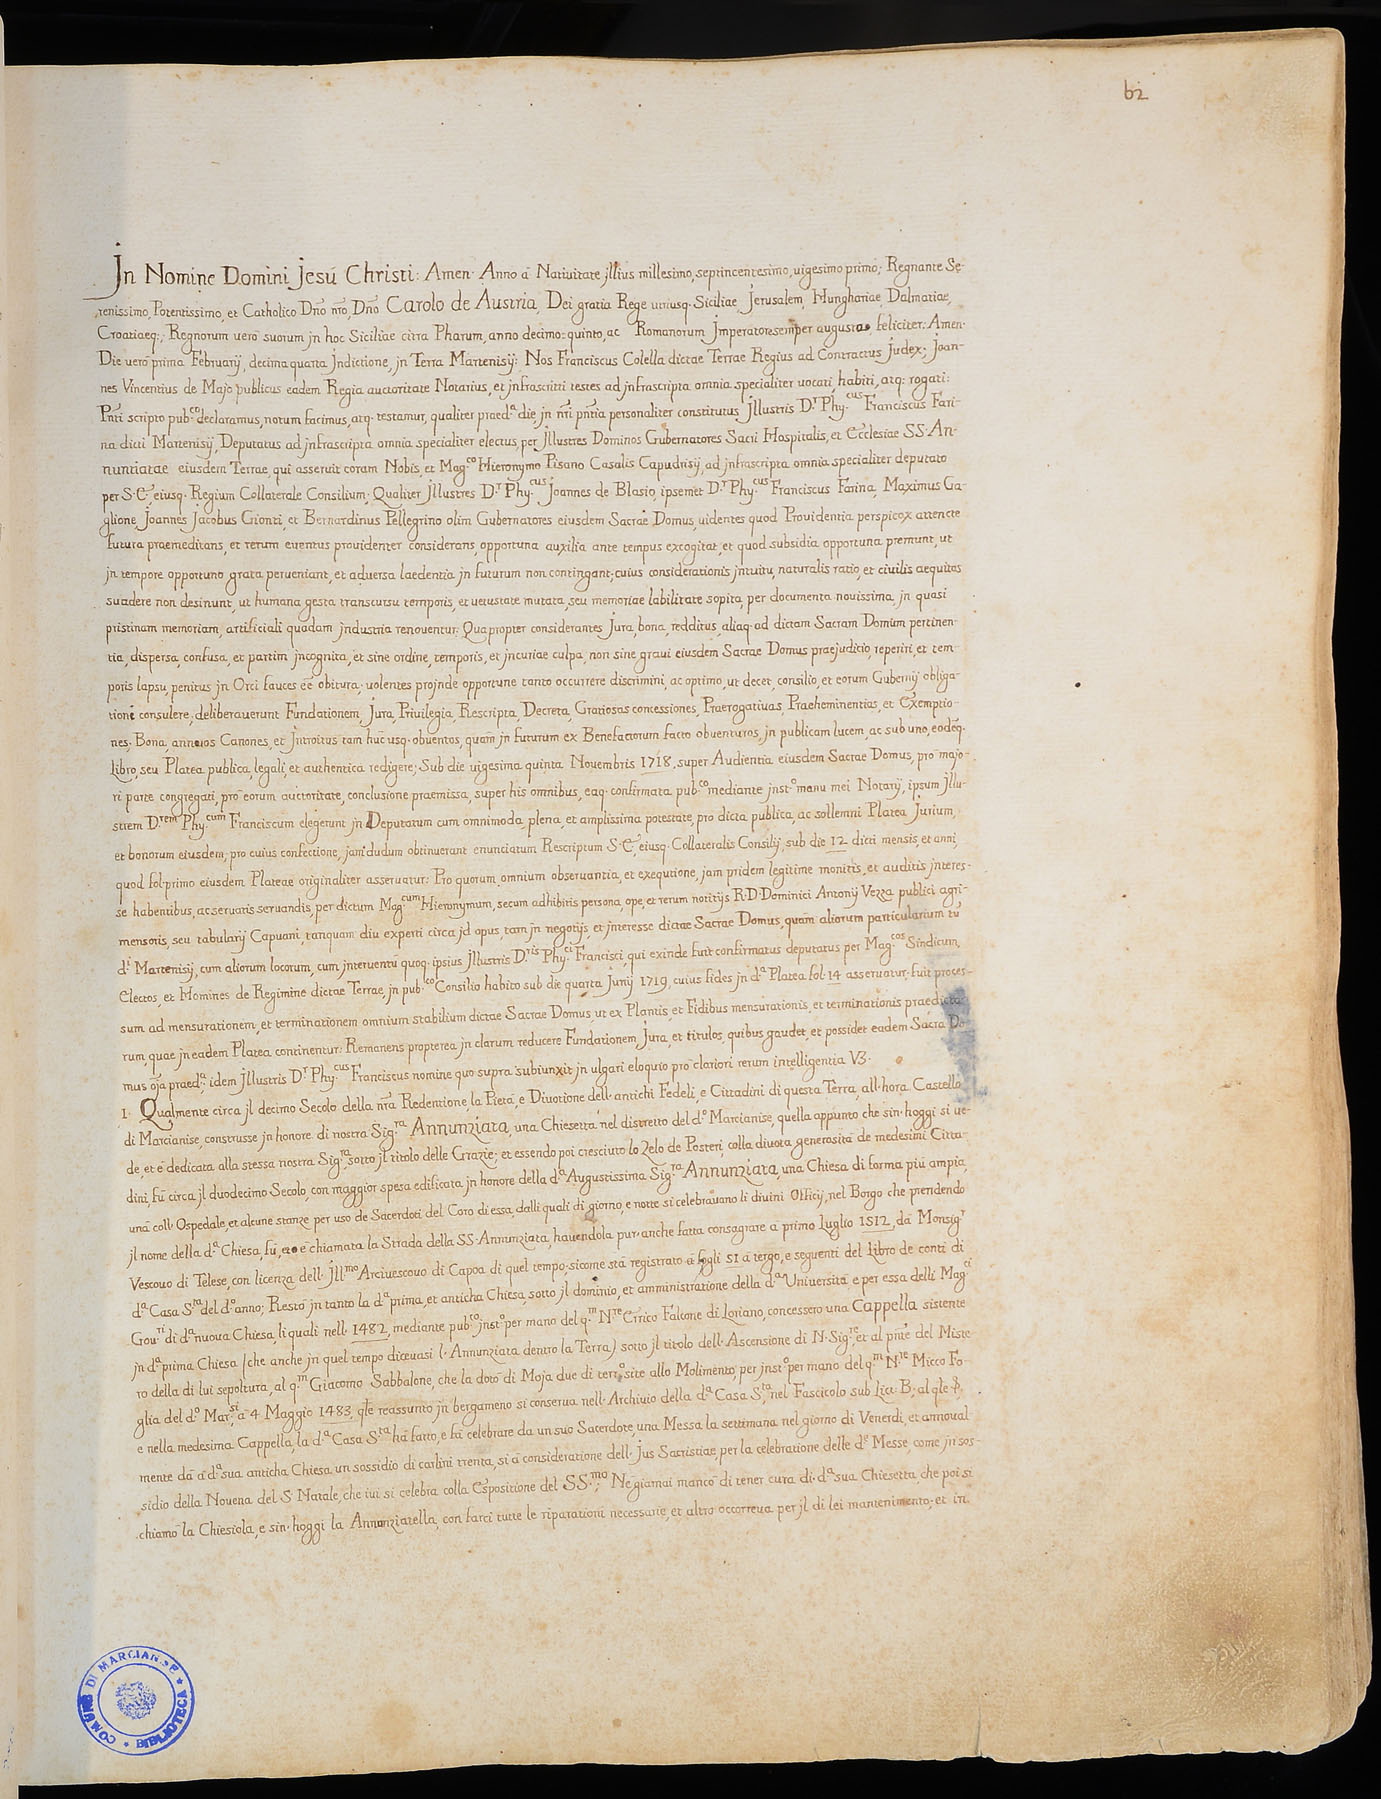 62
Jn Nomine Domini Jesú Christi: Amen. Anno à Natiuitate jllius millesimo, septincentesimo, uigesimo primo; Regnante Se-
renissimo, Potentissimo, et Catholico Dño nrõ, Dño Carolo de Austria, Dei gratia Rege utriusq. Siciliae, Jerusalem, Hunghariae, Dalmatiae,
Croatiaeq:, Regnorum uerò suorum jn hoc Siciliae citra Pharum, anno decimo=quinto, ac Romanorum Jmperatore semper augusto, feliciter: Amen.
Die uerò prima Februarij, decima quarta Jndictione, jn Terra Martenisij: Nos Franciscus Colella dictae Terrae Regius ad Contractus Judex; Joan-
nes Vincentius de Majo publicus eadem Regia auctoritate Notarius, et jnfrascritti testes ad jnfrascripta omnia specialiter uocati, habiti, atq: rogati:
Pnti scripto pub:co declaramus, notum facimus, atq: testamur, qualiter praed:a die, jn nrĩ pntia personaliter constitutus Jllustris D:r Phy:cus Franciscus Fari-
na dicti Martenisij, Deputatus ad jnfrascripta omnia specialiter electus, per Jllustres Dominos Gubernatores Sacri Hospitalis, et Ecclesiae SS. An-
nuntiatae eiusdem Terrae, qui asseruit coram Nobis, et Mag:co Hieronymo Pisano Casalis Capudrisij, ad jnfrascripta omnia specialiter deputato
per S. E., eiusq. Regium Collaterale Consilium; Qualiter Jllustres D:r Phy:cus Joannes de Blasio, ipsemet D:r Phy:cus Franciscus Farina, Maximus Ga-
glione, Joannes Jacobus Gionti, et Bernardinus Pellegrino olim Gubernatores eiusdem Sacrae Domus, uidentes quod Prouidentia perspicax attencte
futura praemeditans, et rerum euentus prouidenter considerans, opportuna auxilia ante tempus excogitat, et quod subsidia opportuna premunt, ut
jn tempore opportuno grata perueniant, et aduersa laedentia jn futurum non contingant; cuius considerationis jntuitu, naturalis ratio, et ciuilis aequitas
suadere non desinunt, ut humana gesta transcursu temporis, et uetustate mutata, seu memoriae labilitate sopita, per documenta nouissima, jn quasi
pristinam memoriam, artificiali quadam jndustria renouentur: Quapropter considerantes Jura, bona, redditus, aliaq. ad dictam Sacram Domum pertinen-
tia, dispersa, confusa, et partim jncognita, et sine ordine, temporis, et jncuriae culpa, non sine graui eiusdem Sacrae Domus praejudicio, reperiri, et tem-
poris lapsu, penitus jn Orci fauces eẽ obitura; uolentes projnde opportune tanto occurrere discrimini, ac optimo, ut decet, consilio, et eorum Gubernij obliga-
tioni consulere; deliberauerunt Fundationem, Jura, Priuilegia, Rescripta, Decreta, Gratiosas concessiones, Praerogatiuas, Praeheminentias, et Exemptio-
nes, Bona, annuos Canones, et Jntroitus tam huc usq. obuentos, quam jn futurum ex Benefactorum facto obuenturos, jn publicam lucem, ac sub uno, eodẽq.
Libro, seu Platea publica, legali, et authentica redigere; Sub die uigesima quinta Nouembris 1718, super Audientia eiusdem Sacrae Domus, prò majo-
ri parte congregati, prò eorum auctoritate, conclusione praemissa, super his omnibus, eaq. confirmata pub:co mediante jnst:o manu mei Notarij, ipsum Jllu-
strem D:rem Phy:cum Franciscum elegerunt jn Deputatum cum omnimoda, plena, et amplissima potestate, pro dicta publica, ac sollemni Platea Jurium,
et bonorum eiusdem; pro cuius confectione, jam dudum obtinuerant enunciatum Rescriptum S. E., eiusq. Collateralis Consilij, sub die 12 dicti mensis, et anni,
quod fol. primo eiusdem Plateae originaliter asseruatur: Pro quorum omnium obseruantia, et exequtione, jam pridem legitime monitis, et auditis jnteres-
se habentibus, ac seruatis seruandis, per dictum Mag:cum Hieronymum, secum adhibitis persona, ope, et rerum notitijs R. D. Dominici Antonij Vezza publici agri-
mensoris, seu tabularij Capuani, tanquam diu experti circa jd opus, tam jn negotijs, et jnteresse dictae Sacrae Domus, quam aliorum particularium tũ
d:i Martenisij, cum aliorum locorum, cum jnteruentu quoq. ipsius Jllustris D:ris Phy:ci Francisci, qui exinde fuit confirmatus deputatus per Mag:cos Sindicum,
Electos, et Homines de Regimine dictae Terrae, jn pub:co Consilio habito sub die quarta Junij 1719, cuius fides jn d:a Platea fol. 14 asseruatur; fuit proces-
sum ad mensurationem, et terminationem omnium stabilium dictae Sacrae Domus, ut ex Plantis, et Fidibus mensurationis, et terminationis praedicta-
rum, quae jn eadem Platea continentur: Remanens propterea jn clarum reducere Fundationem, Jura, et titulos, quibus gaudet, et possidet eadem Sacra Do-
mus oĩa praed:a; idem Jllustris D:r Phy:cus Franciscus nomine quo supra subiunxit jn ulgari eloquio prò clariori rerum intelligentia V3.
1. Qualmente circa jl decimo Secolo della nrã Redentione, la Pietà, e Diuotione dell' antichi Fedeli, e Cittadini di questa Terra, all'hora Castello
di Marcianise, construsse jn honore di nostra Sig:ra Annunziata, una Chiesetta nel distretto del d:o Marcianise, quella appunto che sin' hoggi si ue-
de, et è dedicata alla stessa nostra Sig:ra, sotto jl titolo delle Grazie; et essendo poi cresciuto lo Zelo de Posteri, colla diuota generosità de medesimi Citta-
dini, fù circa jl duodecimo Secolo, con maggior spesa edificata jn honore della d:a Augustissima Sig:ra Annunziata, una Chiesa di forma più ampia,
unà coll' Ospedale, et alcune stanze per uso de Sacerdoti del Coro di essa, dalli quali di giorno, e notte si celebrauano li diuini Officij, nel Borgo che prendendo
jl nome della d:a Chiesa, fù, et è chiamata la Strada della SS. Annunziata, hauendola pur' anche fatta consagrare à primo Luglio 1512, da Monsig:r
Vescouo di Telese, con licenza dell' Jll:mo Arciuescouo di Capoa di quel tempo, sicome stà registrato à fogli 51 à tergo, e seguenti del Libro de conti di
d:a Casa S:ta del d:o anno; Restò jn tanto la d:a prima, et anticha Chiesa, sotto jl dominio, et amministratione della d:a Uniuersità e per essa delli Mag:ci
Gou:ri di d:a nuoua Chiesa, li quali nell' 1482, mediante pub:co jnst:o per mano del q:m N:re Errico Falcone di Loriano, concessero una Cappella sistente
jn d:a prima Chiesa (che anche jn quel tempo diceuasi l' Annunziata dentro la Terra) sotto jl titolo dell' Ascensione di N. Sig:re, et al pnte del Miste-
ro della di lui sepoltura, al q:m Giacomo Sabbalone, che la dotò di Moja due di terr:o site allo Molimento, per jnst:o per mano del q:m N:re Micco Fo-
glia del d:o Mar:si à 4 Maggio 1483, qle reassunto jn bergameno si conserua nell' Archiuio della d:a Casa S:ta, nel Fascicolo sub Litt. B; al qle
e nella medesima Cappella, la d:a Casa S:ta hà fatto, e fà celebrare da un suo Sacerdote, una Messa la settimana nel giorno di Venerdi, et annual-
mente dà à d:a sua anticha Chiesa un sossidio di carlini trenta, si à consideratione dell' Jus Sacristiae, per la celebratione delle d:e Messe, come jn sos-
sidio della Nouena del S. Natale, che iui si celebra colla Espositione del SS:mo; Nè giamai mancò di tener cura di d:a sua Chiesetta, che poi si
chiamò la Chiesiola, e sin' hoggi la Annunziatella, con farci tutte le riparationi necessarie, et altro occorreua per jl di lei mantenimento; et in
COMUNE DI MARCIANISE * BIBLIOTECA *